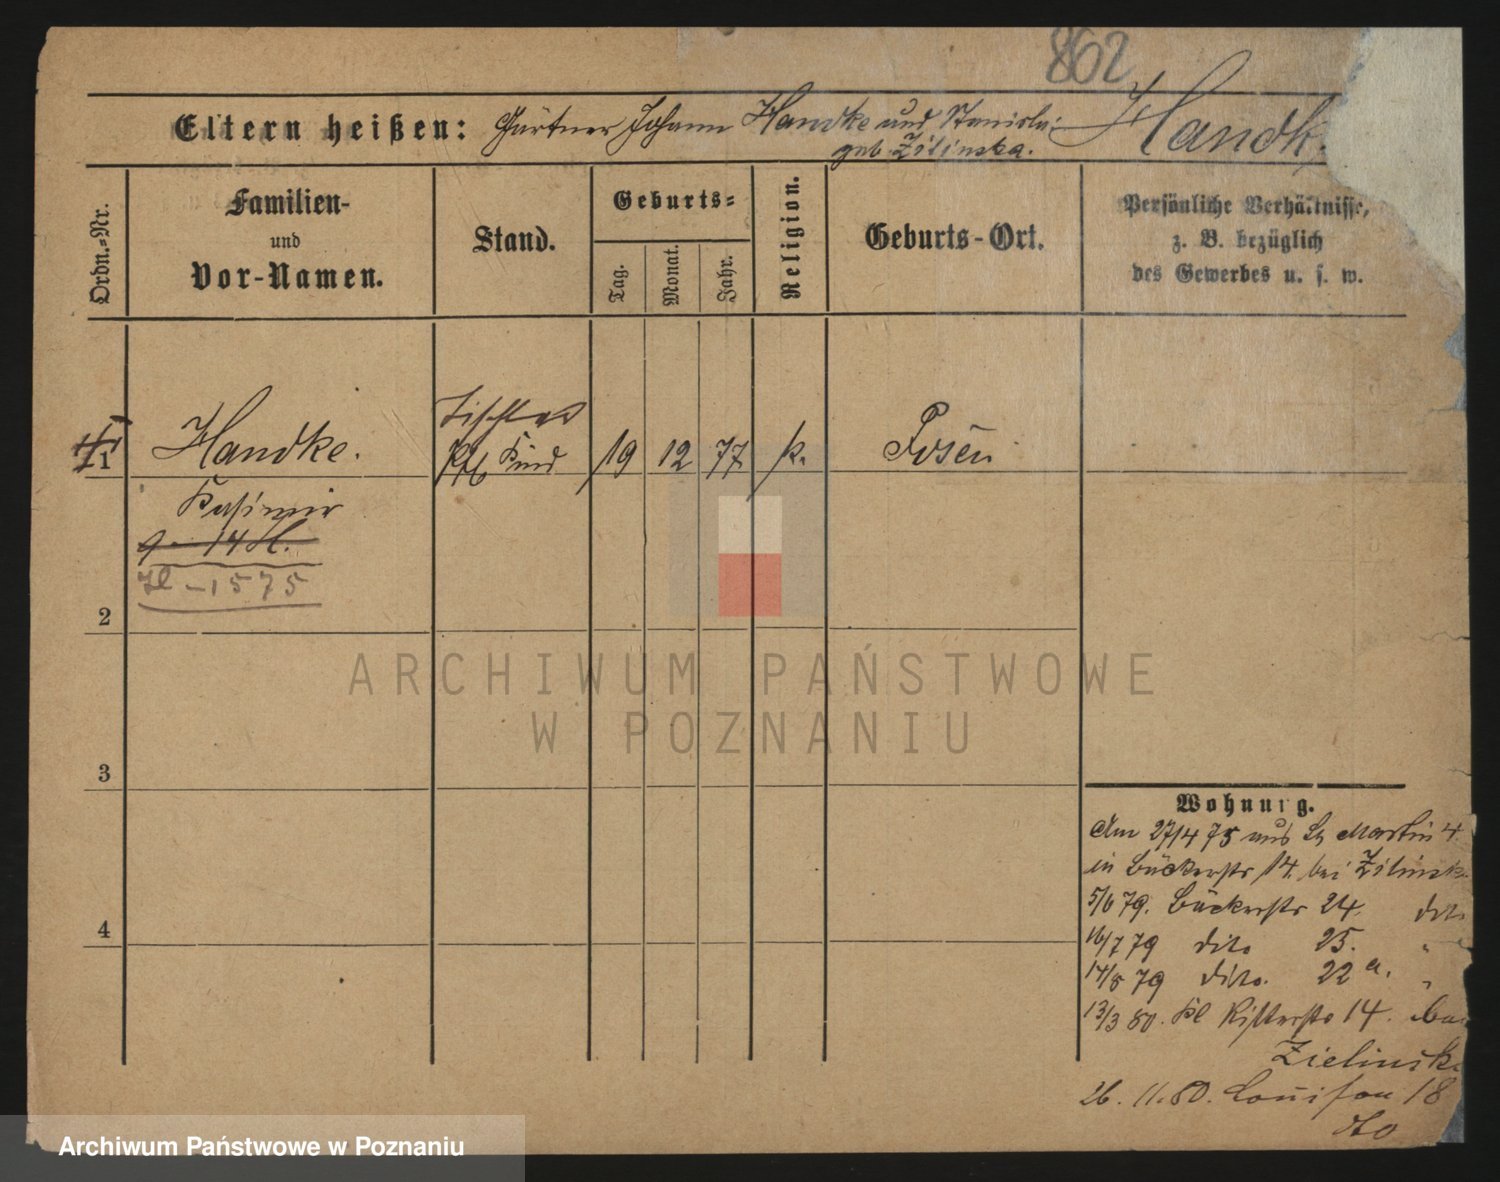 862
Eltern heißen: Gärtner Johann Handke und Stanisl. Handk
geb. Zilinska.
Ordn.=Nr.
Familien-
und
Vor-Namen.
Stand.
Geburts=
Tag.
Monat.
Jahr.
Religion.
Geburts-Ort.
Persönliche Verhältnisse,
z. B. bezüglich
des Gewerbes u. s. w.
1
Handke.
Tischler
Kind
19
12
77
k.
Posen
Kasimir
14
Il - 1575
2
3
4
Wohnung.
Am 27/4 75 aus St Martin 4.
in Bäckerstr 14. bei Zilinsk
5/6 79. Bäckerstr 24. dito
16/7 79 dito 25. "
14/8 79 dito. 22 a. "
13/3 80. Kl Ritterstr 14. bei
Zielinsk
26. 11. 80. Louisen 18
dto
ARCHIWUM PAŃSTWOWE
W POZNANIU
Archiwum Państwowe w Poznaniu